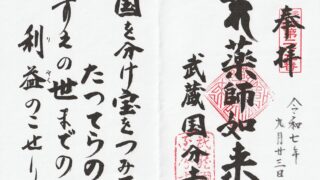 奉拝
薬師如来
武蔵国分寺
令和七年
九月廿三日
国を分け宝をつみて
たつてらの
すえの世までの
利益のこせり